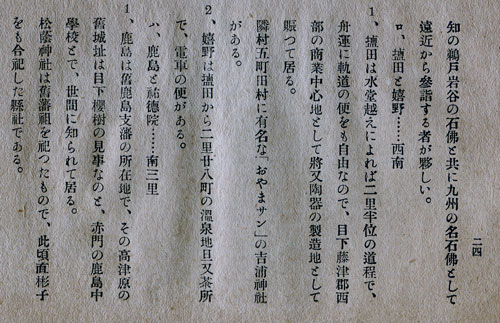 二四
知の鵜戸岩谷の石佛と共に九州の名石佛として
遠近から參詣する者が夥しい。
ロ、塩田と嬉野……西南
1、塩田は水堂越えによれば二里半位の道程で、
舟運に軌道の便をも自由なので、目下藤津郡西
部の商業中心地として將又陶器の製造地として
賑つて居る。
隣村五町田村に有名な「おやまサン」の吉浦神社
がある。
2、嬉野は塩田から二里廿八町の溫泉地且又茶所
で、電車の便がある。
ハ、鹿島と祐德院……南三里
1、鹿島は舊鹿島支藩の所在地で、その高津原の
舊城址は目下櫻樹の見事なのと、赤門の鹿島中
學校とで、世間に知られて居る。
松蔭神社は舊藩祖を祀つたもので、此頃直彬子
をも合祀した縣社である。